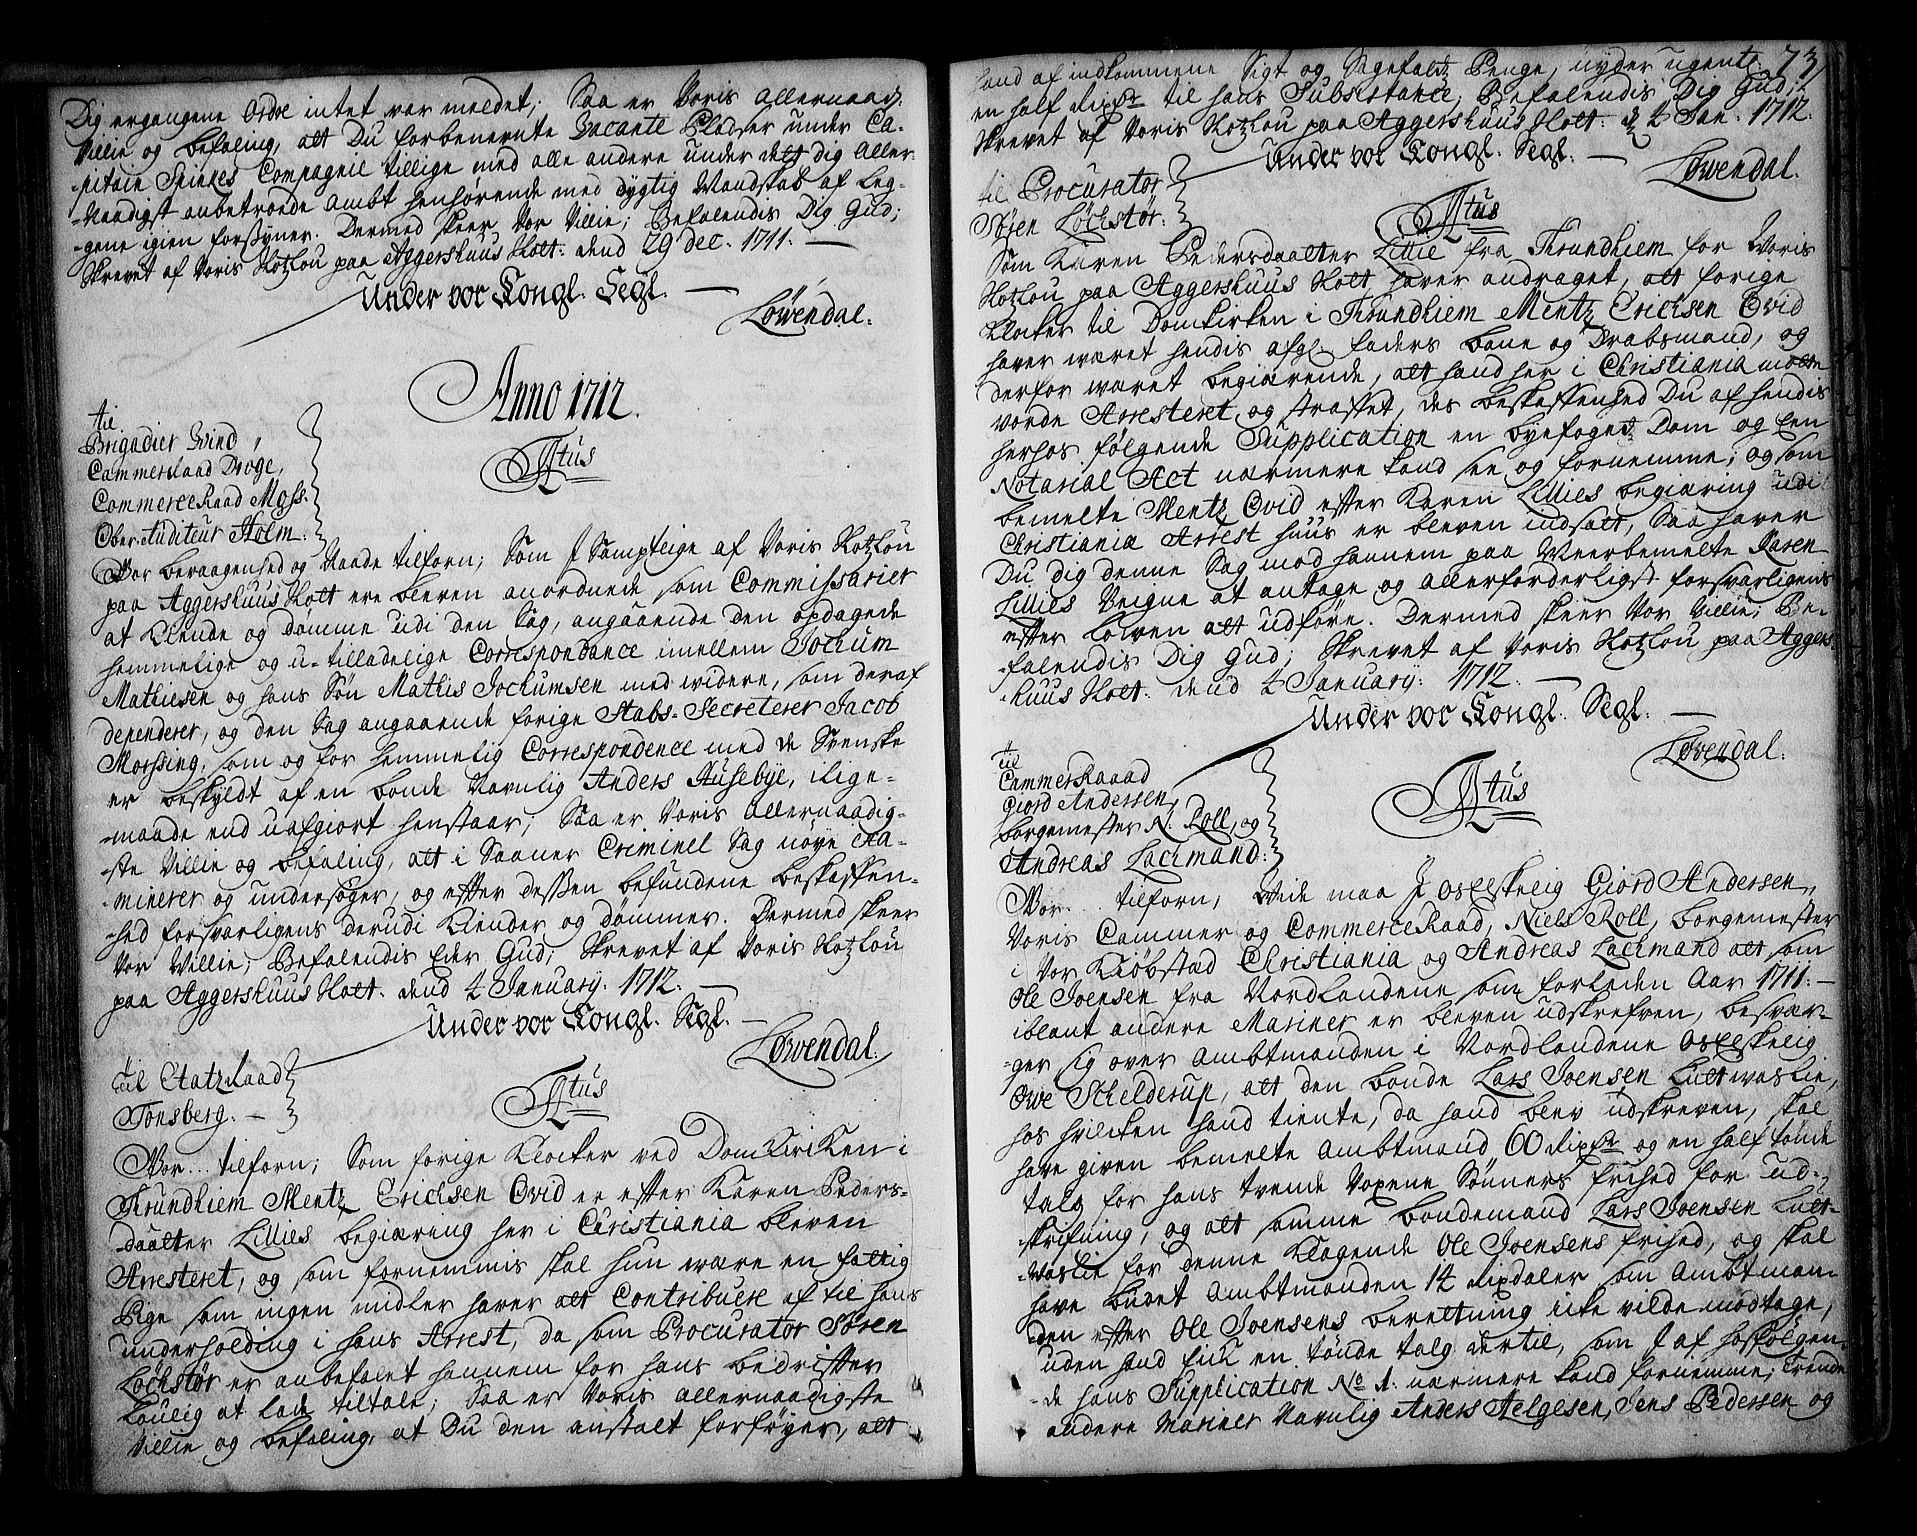 Dig ergangene Ordre intet var meldet; Saa er Voris Allernaad.
Villie og befaling, att Du forbenevnte Vacante Pladser under Ca-
-pitain Spines Compagnie tillige med alle andre under dett dig Aller-
-naadigst anbetroede Ambt henhørende med dygtig Mandskab af Leg-
-gene igien forsÿner. Dermed skeer Vor Villie; Befalendis Dig Gud;
Skrevet af Voris Slotzlou paa Aggershuus Slott: dend 29 dec. 1711. —
Under vor Kongl. Segl. —
Løwendal.
Anno 1712.
til
Brigadier Hvind,
Cammerraad Droge,
Commerce Raad Moss.
Ober-Auditeur Holm.
Ttus
Vor bevaagenhed og Naade tilforn; Som I Sampteige af Voris Slotzlou
paa Aggershuus Slott ere bleven anordnede som Commissarier
at Kiende og dømme udi den Sag, angaaende den opdagede
hemmelige og u-tilladelige Correspondance imellem Jochum
Mathiesen og hans Søn Mathis Jochumsen med widere, som deraf
dependerer, og den Sag angaaende forige Stabs-Secreterer Jacob
Morssing, som og for hemmelig Correspondence med de Svenske
er beskyldt af en bonde Navnlig Anders Husebye, ilige-
-maade end uafgiort henstaar; Saa er Voris Allernaadig-
-ste Villie og befaling, att i Saaner Criminel Sag nøye Exa-
-minerer og undersøger, og efter dessen befundene beskaffen-
-hed forsvarligens derudi Kiender og dømmer. Dermed skeer
Vor Willie; Befalendis Eder Gud; Skrevet af Voris Slotzlou
paa Aggershuus Slott. dend 4 January. 1712. —
Under vor Kongl. Segl. —
Løvendal.
til Etatz Raad
Tonsberg. —
Ttus
Vor... tilforn; Som forige Klocker ved DomKirKen i
Thrundhiem Mentz Erichsen Ovid er efter Karen Peders-
-daatter Lillies begiæring her i Christiania bleven
Arresteret, og som fornemmis skal hun være en fattig
Pige som ingen midler haver att Contribuere af til hans
underholding i hans Arrest, da som Procurator Søren
Løchstør er anbefalet hannem for hans bedrifter
Loulig at lade tiltale; Saa er Voris allernaadigste
Villie og befaling, at Du den anstalt forføyer, att
73
hand af indkommene Sigt og Sagefaldz Penge, nyder ugentl.
en half Rixdr til hans Subsistance; Befalendis Dig Gud;
Skrevet af Voris Slotzlou paa Aggershuus Slott. d 4 Jan. 1712.
Under vor Kongl. Segl. —
Løvendal.
til Procurator
Søren Løchstør:
Ttus
Som Karen Pedersdaatter Lillie fra Thrundhiem for Voris
Slotzlou paa Aggershuus Slott, haver andraget, att forige
Klocker til Domkirken i Thrundhiem Mentz Erichsen Ovid
haver wæret hendis afgl. Faders bane og Drabsmand, og
derfor wæret begiærende, att hand her i Christiania maatte
vorde Arresteret og straffet, des beskaffenhed Du af hendis
herhos følgende Supplication en byefogdz Dom og Een
Notarial Act nærmere kand see og fornemme; og som
bemelte Mentz Ovid efter Karen Lillies begiæring udi
Christiania Arrest huus er bleven indsatt, Saa haver
Du dig denne Sag mod hannem paa Weerbemelte Karen
Lillies Veigne at antage og allerforderligst forsvarligens
efter Lowen att udføre. Dermed skeer Vor Villie; Be-
-falendis Dig Gud; Skrevet af Voris Slotzlou paa Aggers-
-huus Slott. dend 4 January. 1712. —
Under vor Kongl. Segl. —
Løvendal.
til
CammerRaaad
Giord Andersen,
borgemester N. Roll, og
Andreas Lachmand:
Ttus
Vor... tilforn, Wide maa I OsElskelig Giord Andersen,
Voris Cammer og CommerceRaad, Niels Roll, borgemester
i Vor Kiøbstad Christiania og Andreas Lachmand att som
Ole Joensen fra Nordlandene som forleden Aar 1711. —
iblant andere Mariner er bleven udskrefven, besvær-
-ger sig over Ambtmanden i Nordlandene OsElskelig
Ove Schelderup, att den bonde Lars Joensen Luttwaslie,
hos hvilcken hand tiente, da hand blev udskreven, skal
have given bemelte Ambtmand 60 Rixdr og en half tønde
talg for hans tvende Voxene Sønners frihed for ud-
-skrifning, og att samme bondemand Lars Joensen Lutt-
-waslie for denne Klagende Ole Joensens frihed, og skal
have budet Ambtmanden 14 Rixdaler som Ambtman-
-den efter Ole Joensens beretning icke vilde modtage,
uden hand fick en tønde talg dertil, som I af hosfølgen-
-de hans Supplication No 1. nærmere kand fornemme; Tvende
andere Mariner Navnlig Anders Helgesen, Jens Pedersen og